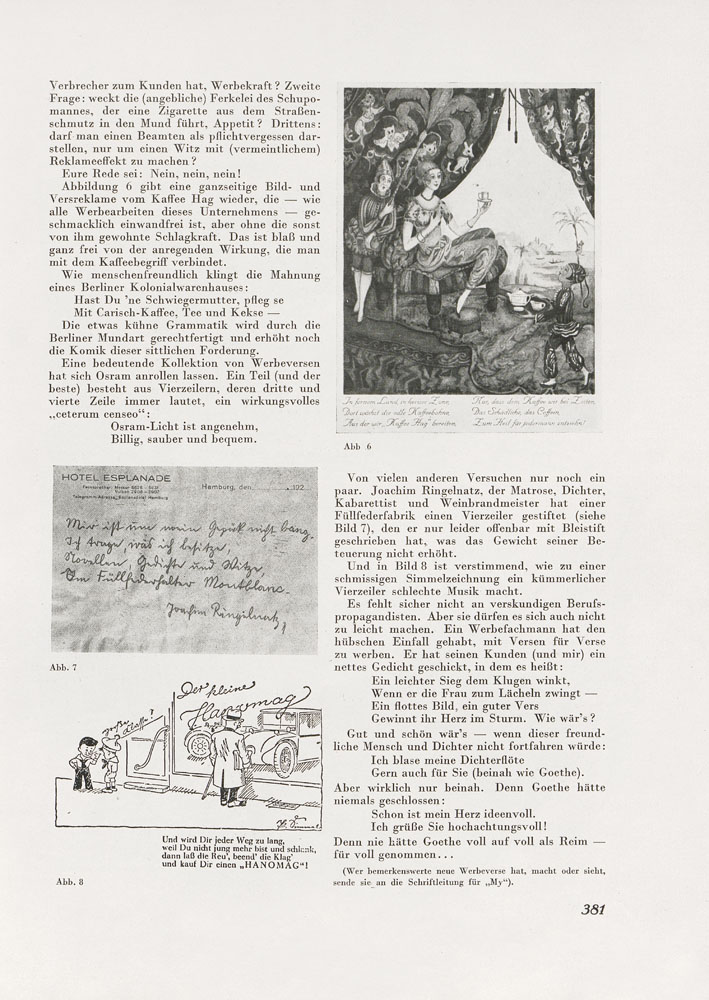 Verbrecher zum Kunden hat, Werbekraft? Zweite
Frage: weckt die (angebliche) Ferkelei des Schupo-
mannes, der eine Zigarette aus dem Straßen-
schmutz in den Mund führt, Appetit? Drittens:
darf man einen Beamten als pflichtvergessen dar-
stellen, nur um einen Witz mit (vermeintlichem)
Reklameeffekt zu machen?
Eure Rede sei: Nein, nein, nein!
Abbildung 6 gibt eine ganzseitige Bild- und
Versreklame vom Kaffee Hag wieder, die — wie
alle Werbearbeiten dieses Unternehmens — ge-
schmacklich einwandfrei ist, aber ohne die sonst
von ihm gewohnte Schlagkraft. Das ist blaß und
ganz frei von der anregenden Wirkung, die man
mit dem Kaffeebegriff verbindet.
Wie menschenfreundlich klingt die Mahnung
eines Berliner Kolonialwarenhauses:
Hast Du 'ne Schwiegermutter, pfleg se
Mit Carisch-Kaffee, Tee und Kekse —
Die etwas kühne Grammatik wird durch die
Berliner Mundart gerechtfertigt und erhöht noch
die Komik dieser sittlichen Forderung.
Eine bedeutende Kollektion von Werbeversen
hat sich Osram anrollen lassen. Ein Teil (und der
beste) besteht aus Vierzeilern, deren dritte und
vierte Zeile immer lautet, ein wirkungsvolles
„ceterum censeo“:
Osram-Licht ist angenehm,
Billig, sauber und bequem.
HOTEL ESPLANADE
Telegramm-Adresse „Esplanade“ Hamburg
Hamburg, den 192
Mir ist um mein Gepäck nicht bang.
Ich trage, was ich besitze,
Novellen, Gedichte und Witze,
Im Füllfederhalter Montblanc.
Joachim Ringelnatz
Abb. 7
Der kleine
Hanomag
große
Und wird Dir jeder Weg zu lang,
weil Du nicht jung mehr bist und schlank,
dann laß die Reu', beend' die Klag'
und kauf Dir einen „HANOMAG“!
Abb. 8
In fernem Land, in heißer Zone,
Dort wächst die edle Kaffeebohne,
Aus der wir „Kaffee Hag“ bereiten,
Nur, dass dem Kaffee wir bei Zeiten
Das Schädliche, das Coffein,
Zum Heil für jedermann entziehn!
Abb 6
Von vielen anderen Versuchen nur noch ein
paar. Joachim Ringelnatz, der Matrose, Dichter,
Kabarettist und Weinbrandmeister hat einer
Füllfederfabrik einen Vierzeiler gestiftet (siehe
Bild 7), den er nur leider offenbar mit Bleistift
geschrieben hat, was das Gewicht seiner Be-
teuerung nicht erhöht.
Und in Bild 8 ist verstimmend, wie zu einer
schmissigen Simmelzeichnung ein kümmerlicher
Vierzeiler schlechte Musik macht.
Es fehlt sicher nicht an verskundigen Berufs-
propagandisten. Aber sie dürfen es sich auch nicht
zu leicht machen. Ein Werbefachmann hat den
hübschen Einfall gehabt, mit Versen für Verse
zu werben. Er hat seinen Kunden (und mir) ein
nettes Gedicht geschickt, in dem es heißt:
Ein leichter Sieg dem Klugen winkt,
Wenn er die Frau zum Lächeln zwingt —
Ein flottes Bild, ein guter Vers
Gewinnt ihr Herz im Sturm. Wie wär's?
Gut und schön wär's — wenn dieser freund-
liche Mensch und Dichter nicht fortfahren würde:
Ich blase meine Dichterflöte
Gern auch für Sie (beinah wie Goethe).
Aber wirklich nur beinah. Denn Goethe hätte
niemals geschlossen:
Schon ist mein Herz ideenvoll.
Ich grüße Sie hochachtungsvoll!
Denn nie hätte Goethe voll auf voll als Reim —
für voll genommen...
(Wer bemerkenswerte neue Werbeverse hat, macht oder sieht,
sende sie an die Schriftleitung für „My“).
381